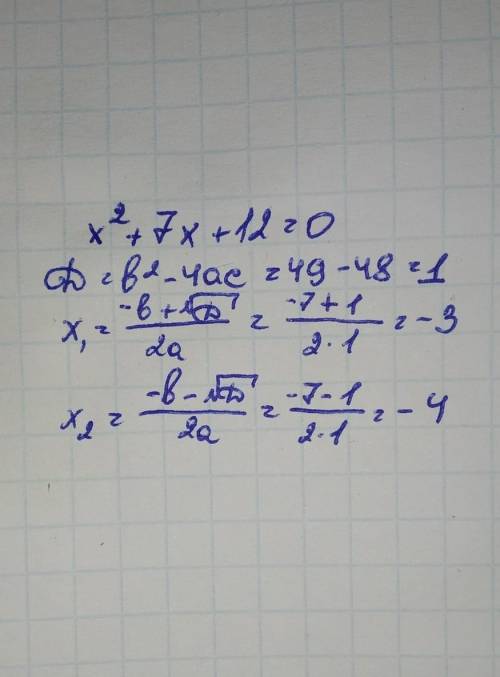 x² + 7x + 12 = 0
D = b² - 4ac = 49 - 48 = 1
x₁ = (-b + √D) / 2a = (-7 + 1) / 2·1 = -3
x₂ = (-b - √D) / 2a = (-7 - 1) / 2·1 = -4